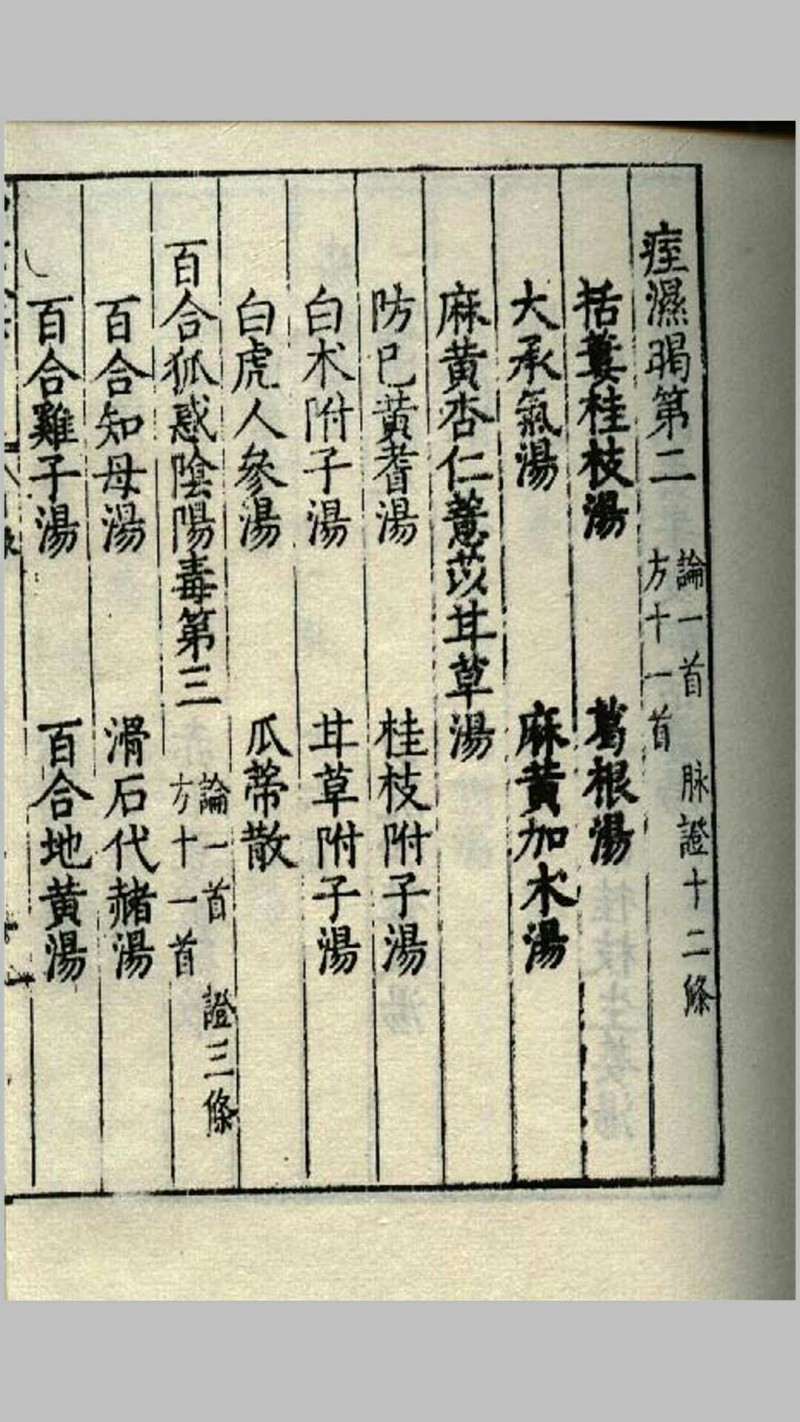 痓濕暍第二 論一首 脉證十二條 方十一首
栝蔞桂枝湯 葛根湯
大承氣湯 麻黃加朮湯
麻黃杏仁薏苡甘草湯
防已黃耆湯 桂枝附子湯
白朮附子湯 甘草附子湯
白虎人參湯 瓜蔕散
百合狐惑陰陽毒第三 論一首 證三條 方十一首
百合知母湯 滑石代赭湯
百合雞子湯 百合地黃湯